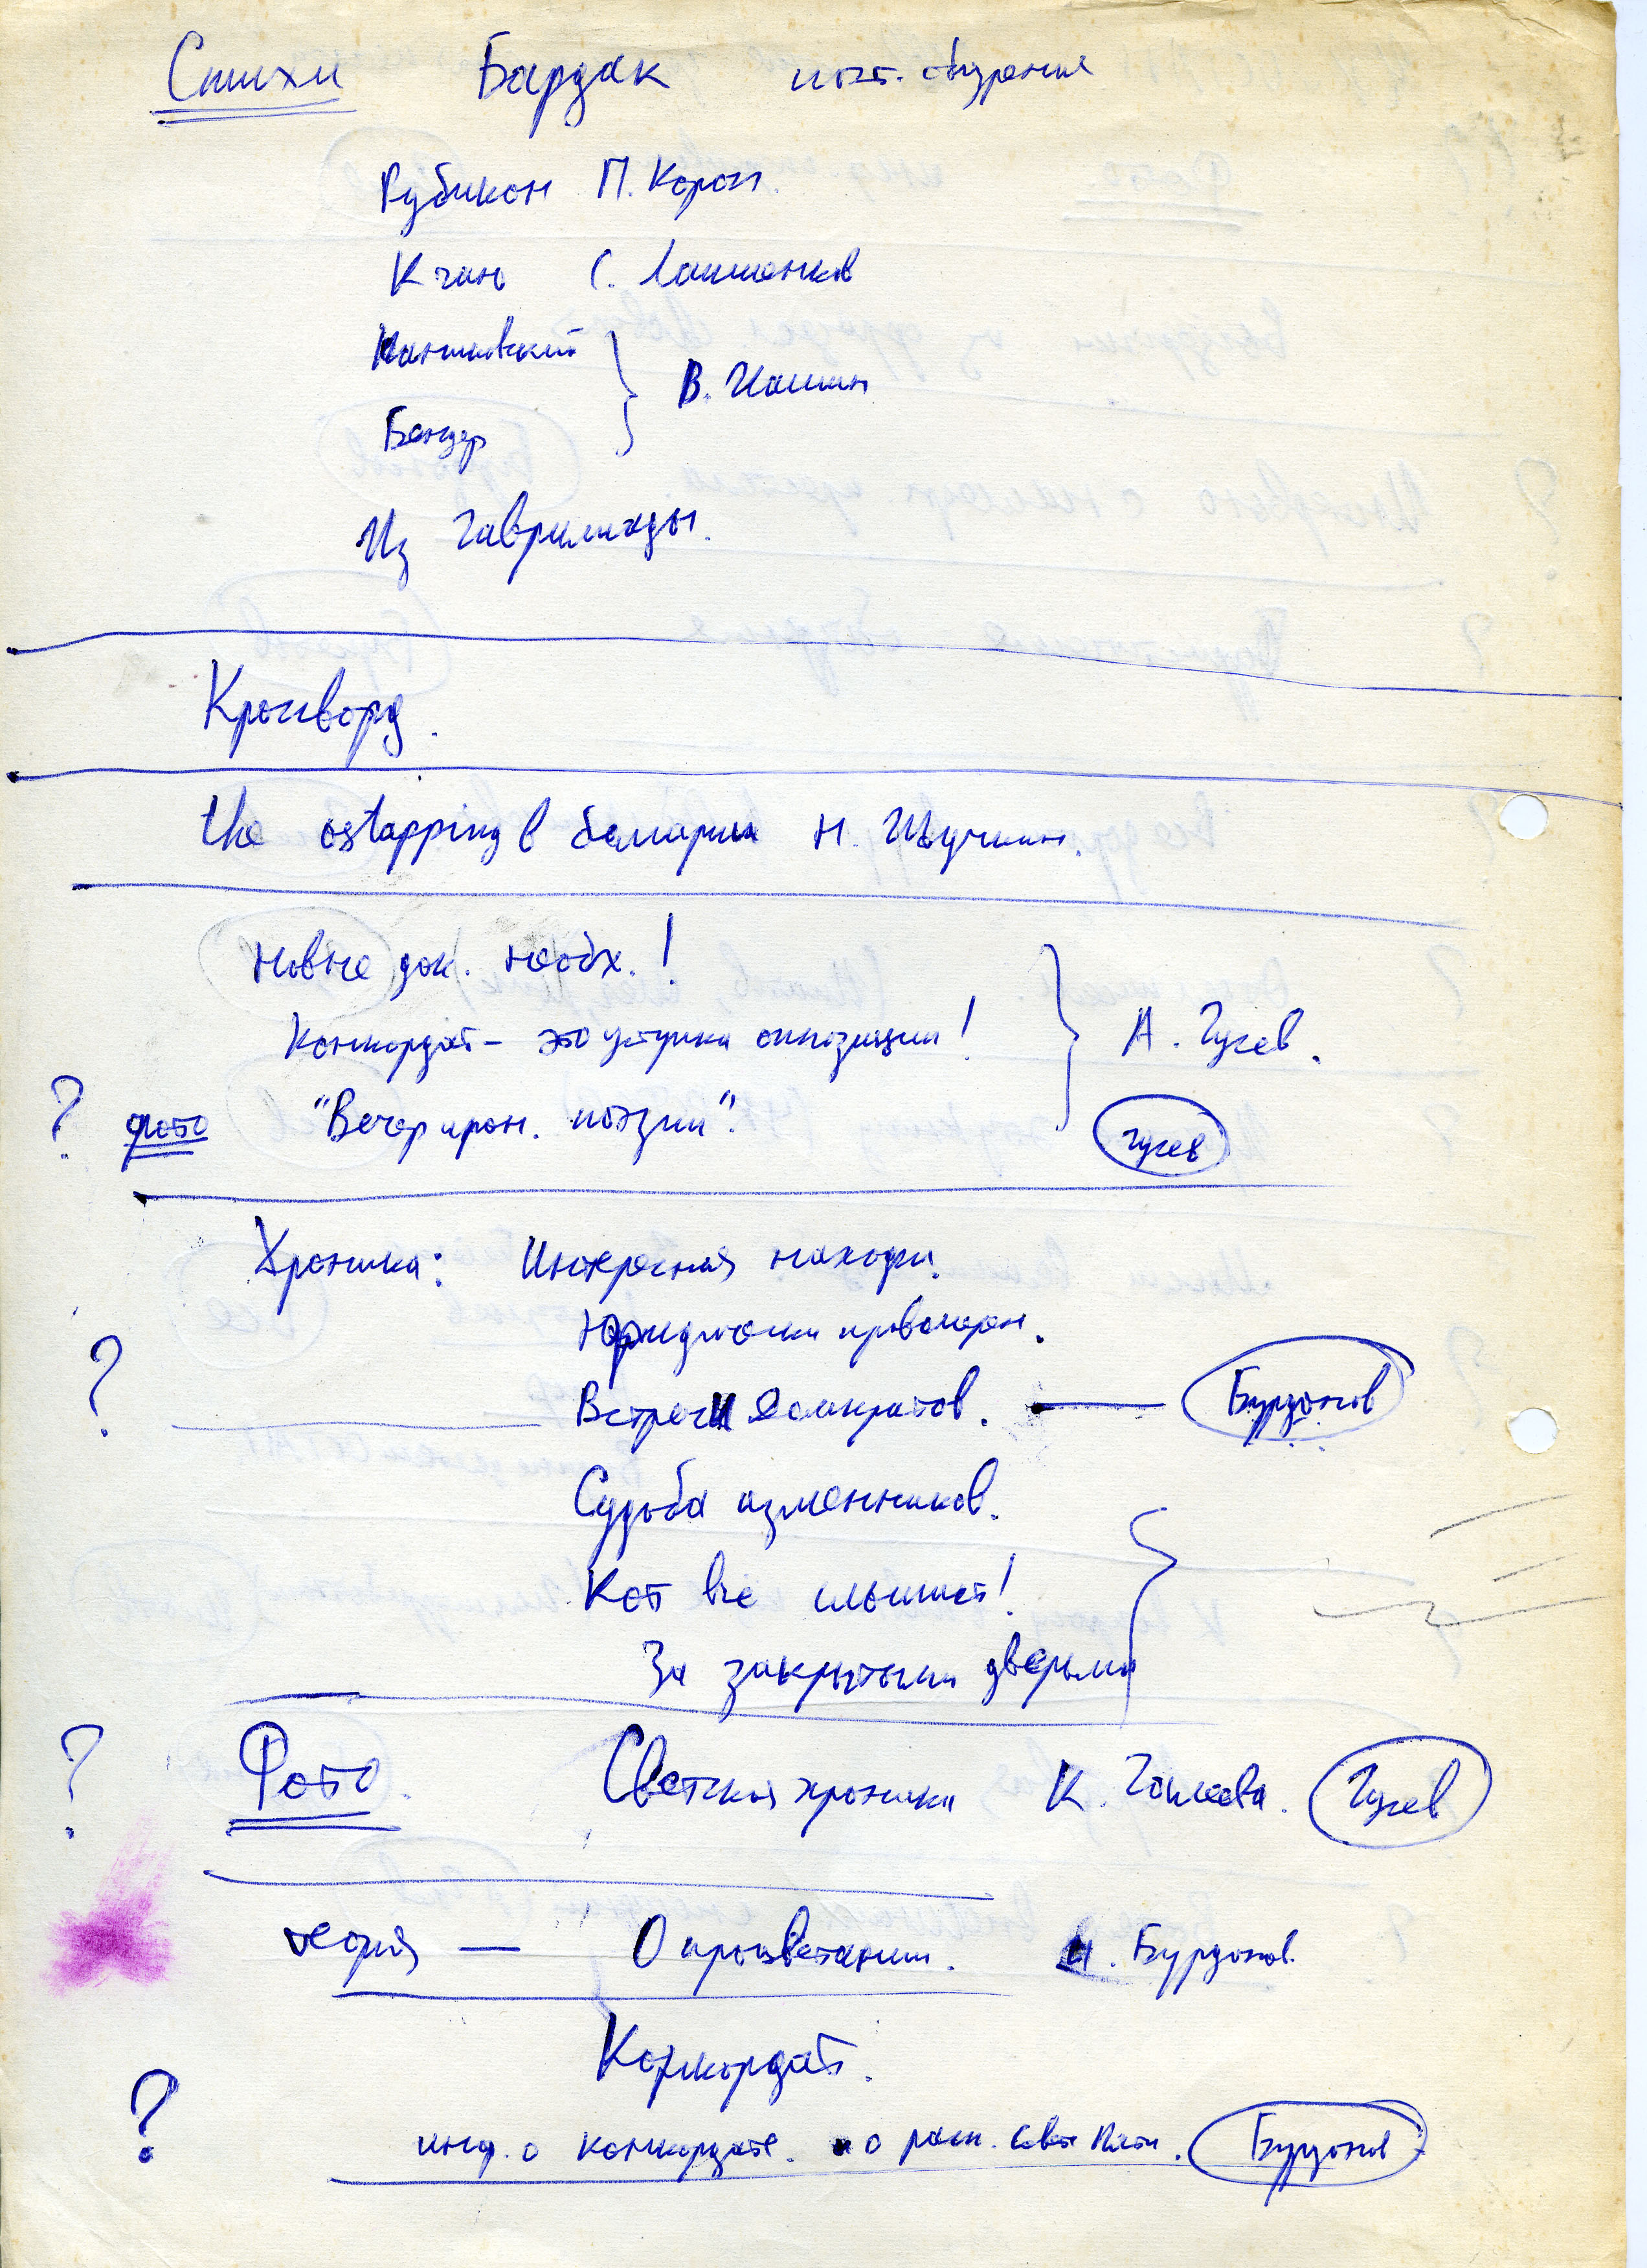 Стихи Бардак поэт. обозрение
Рубикон П. Корол.
К чаю С.
Бендер } В. Ивашин
Из Гаврилиады.
Кроссворд.
the ostapping в Белиарии Н. Шучкин.
Новые док. необх.!
Конкордат – это уступка оппозиции! } А. Гусев.
? фото "Вечер ирон. поэзии". Гусев
Хроника: Интересная находка.
Юридически правомерен.
? Встречи демократов. — Бурдонов
Судьба изменников.
Кот все слышит!
За закрытыми дверьми
? Фото. Светская хроника К. Гусев
теория — О процветании. И. Бурдонов.
Конкордат.
? инф. о конкордате. и о расп. Бурдонов